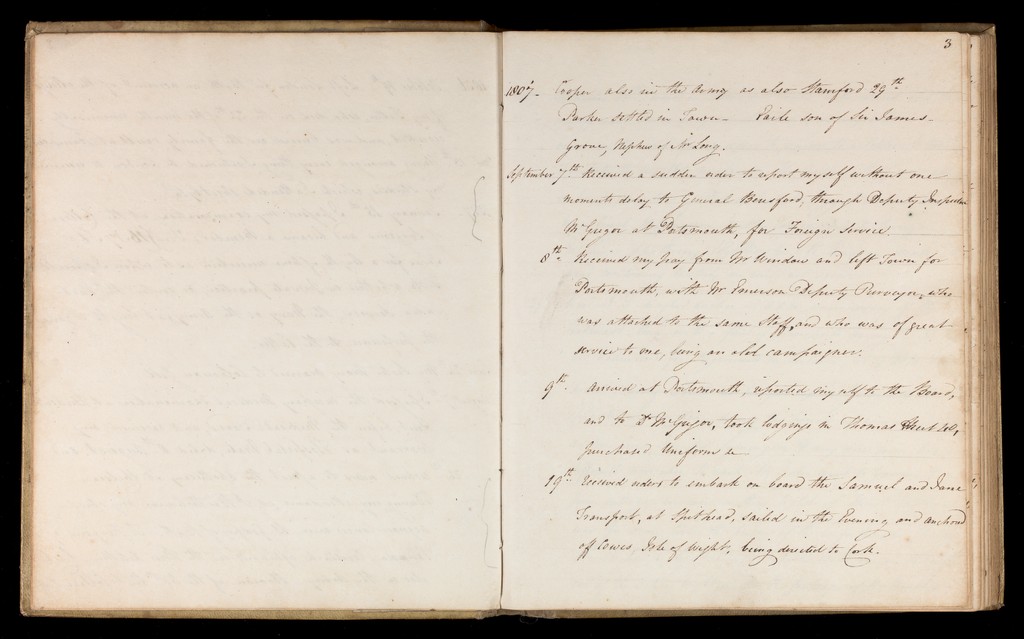 3
1807- Cooper also in the Army as also Stamford 29th
Parker settled in Town- son of Sir James-
Grove, Nephew of Mr Long.
September 7th Received a sudden order to report myself without one
moments delay to General Beresford, through Deputy Inspector
McGrigor at Portsmouth, for Foreign Service.
8th- Received my pay from Mr Window and left Town for
Portsmouth, with Mr Emerson Deputy Purveyor, who
was attached to the same Staff, and who was of great
service to me, being an old campaigner.
9th- Arrived at Portsmouth, reported myself to the Board,
and to Dr McGrigor, took lodgings in Thomas Street
purchased Uniform &c
19th- Received orders to embark on board the Samuel and Jane
Transport, at Spithead, sailed in the Evening and anchored
off Cowes, Isle of Wight, being directed to Cork.